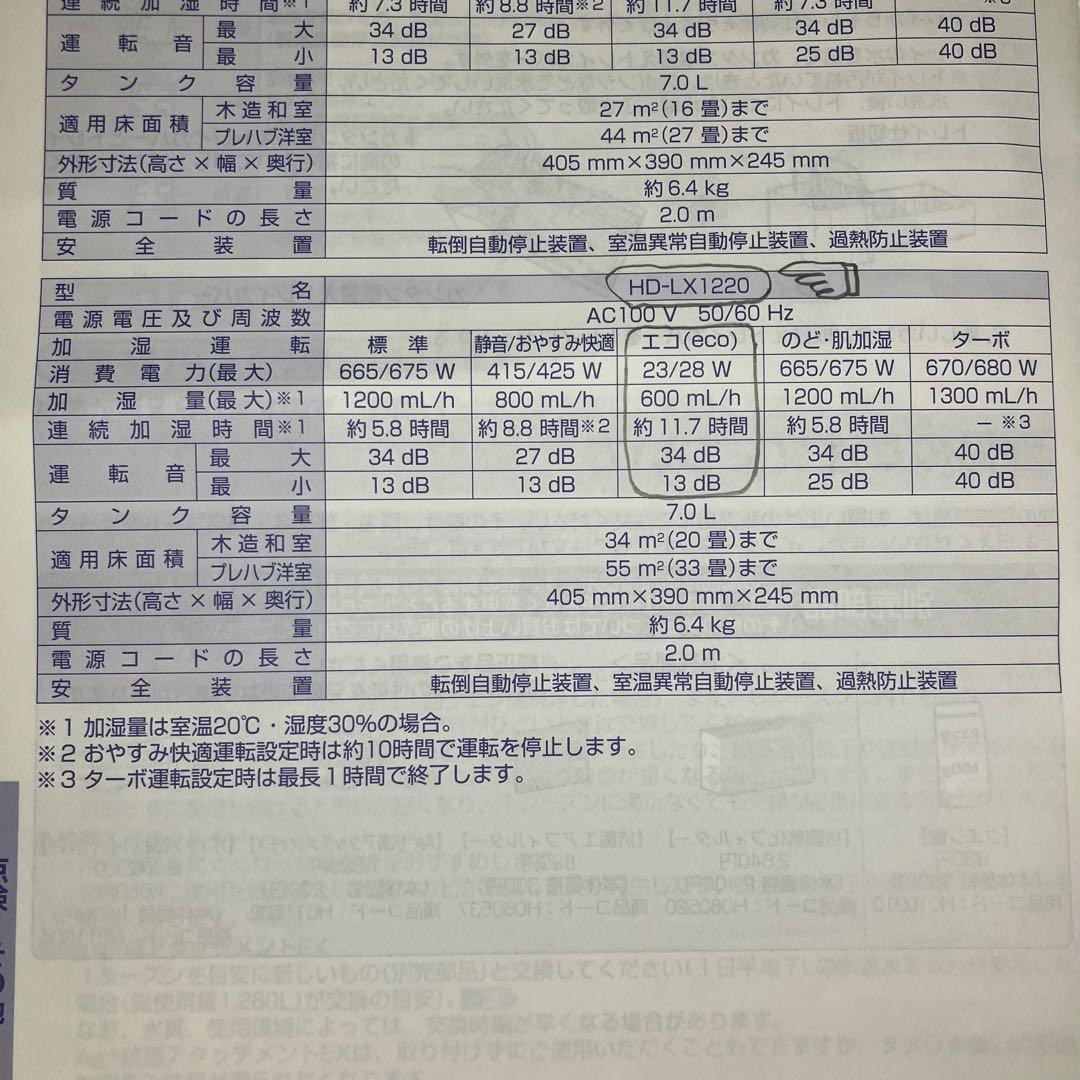 連続加湿時間※1 約7.3時間 約8.8時間※2 約11.7時間 約7.3時間 ※3
運転音 最大 34 dB 27 dB 34 dB 34 dB 40 dB
最小 13 dB 13 dB 13 dB 25 dB 40 dB
タンク容量 7.0 L
適用床面積 木造和室 27 m²(16 畳)まで
プレハブ洋室 44 m²(27 畳)まで
外形寸法(高さ × 幅 × 奥行) 405 mm×390 mm×245 mm
質量 約6.4 kg
電源コードの長さ 2.0 m
安全装置 転倒自動停止装置、室温異常自動停止装置、過熱防止装置
型名 HD-LX1220
電源電圧及び周波数 AC100 V 50/60 Hz
加湿運転 標準 静音/おやすみ快適 エコ(eco) のど・肌加湿 ターボ
消費電力(最大) 665/675 W 415/425 W 23/28 W 665/675 W 670/680 W
加湿量(最大)※1 1200 mL/h 800 mL/h 600 mL/h 1200 mL/h 1300 mL/h
連続加湿時間※1 約5.8 時間 約8.8 時間※2 約11.7 時間 約5.8 時間 − ※3
運転音 最大 34 dB 27 dB 34 dB 34 dB 40 dB
最小 13 dB 13 dB 13 dB 25 dB 40 dB
タンク容量 7.0 L
適用床面積 木造和室 34 m²(20 畳)まで
プレハブ洋室 55 m²(33 畳)まで
外形寸法(高さ × 幅 × 奥行) 405 mm×390 mm×245 mm
質量 約6.4 kg
電源コードの長さ 2.0 m
安全装置 転倒自動停止装置、室温異常自動停止装置、過熱防止装置
※1 加湿量は室温20℃・湿度30%の場合。
※2 おやすみ快適運転設定時は約10時間で運転を停止します。
※3 ターボ運転設定時は最長1時間で終了します。